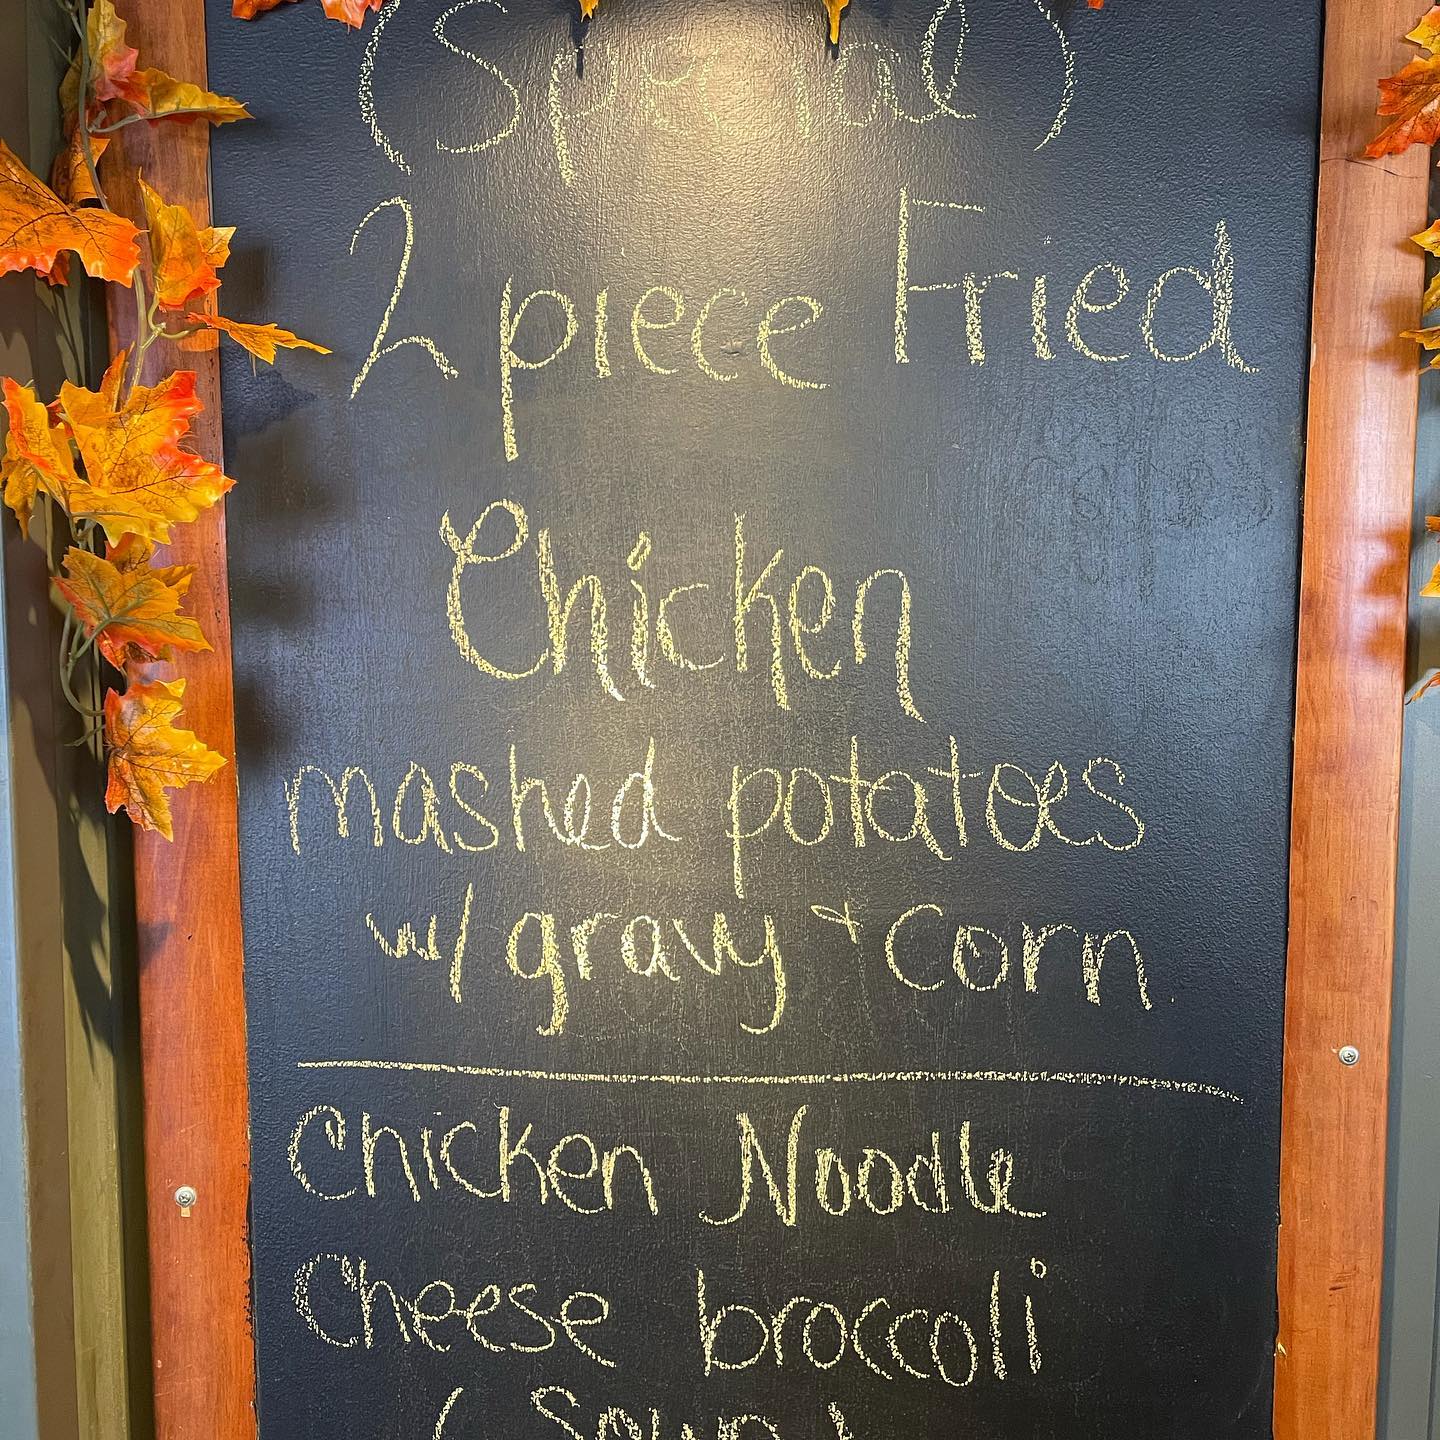 (Special)
2 piece Fried
Chicken
mashed potatoes
w/ gravy + Corn
Chicken Noodle
Cheese broccoli
(Soup)